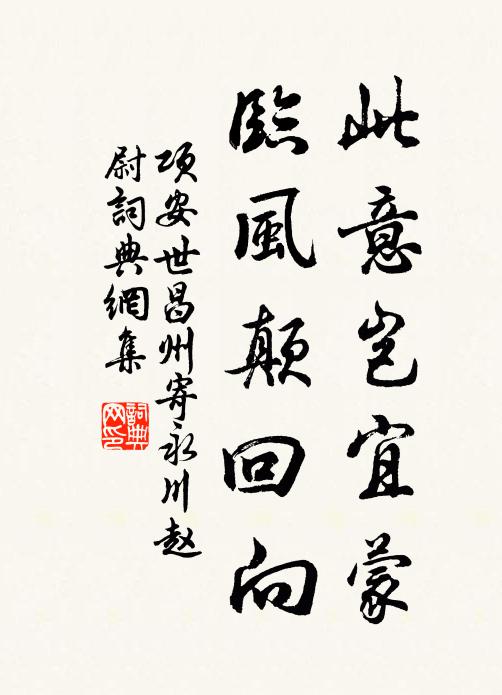 此意岂宜蒙
臨風颠回向
项安世昌州寄永川赵
尉詞典網集
詞典
网印